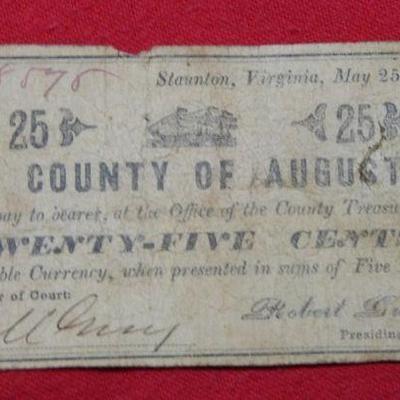 8575
Staunton, Virginia, May 25
25 25
COUNTY OF AUGUST
pay to bearer, at the Office of the County Treasu
WENTY-FIVE CENT
ble Currency, when presented in sums of Five
r of Court:
Robert
Presidin